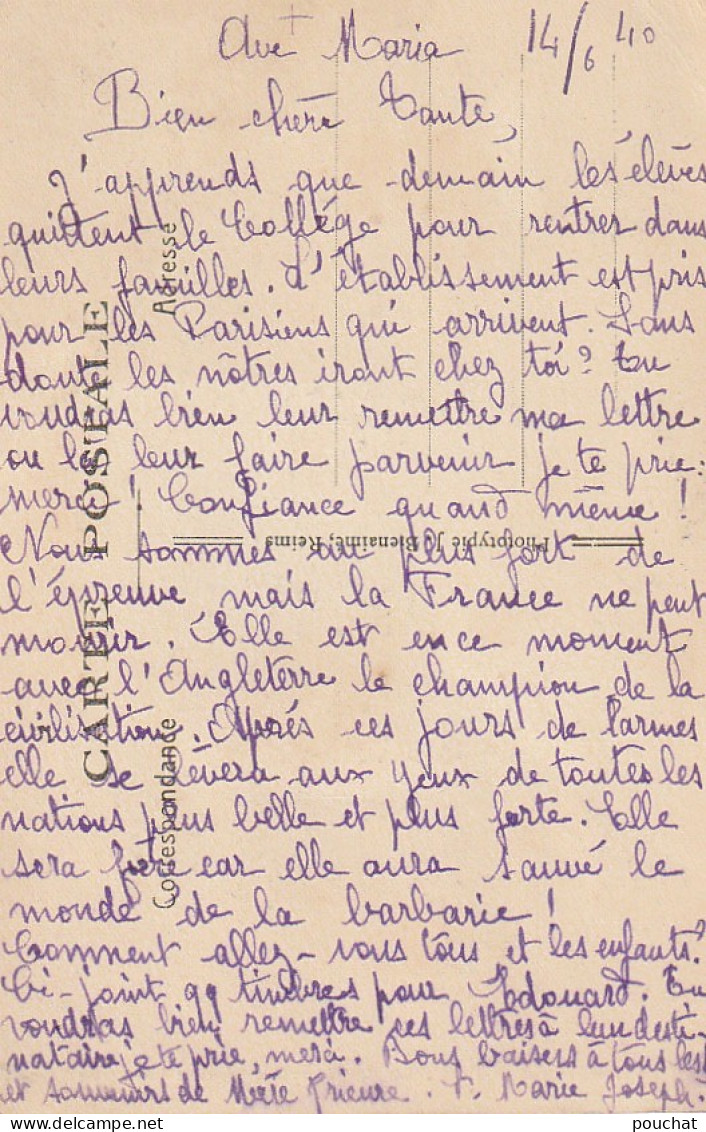 +
Ave Maria 14/6 40
Bien chère Tante,
J'apprends que demain les élèves
quittent le Collége pour rentrer dans
leurs familles. L'établissement est pris
pour les Parisiens qui arrivent. Sans
doute les nôtres iront chez toi? Tu
voudras bien leur remettre ma lettre
ou la leur faire parvenir je te prie:
merci! Confiance quand même!
Nous sommes au plus fort de
l'épreuve mais la France ne peut
mourir. Elle est en ce moment
avec l'Angleterre le champion de la
civilisation. Après ces jours de larmes
elle se lèvera aux yeux de toutes les
nations plus belle et plus forte. Elle
sera fière car elle aura sauvé le
monde de la barbarie!
Comment allez-vous tous et les enfants?
Ci-joint 99 timbres pour Edouard. Tu
voudras bien remettre ces lettres à leur desti-
nataire je te prie, merci. Bons baisers à tous les
et souvenirs de Mère Prieure. Marie Joseph.
CARTE POSTALE
Correspondance
Adresse
Phototypie J. Bienaimé, Reims
pouchat